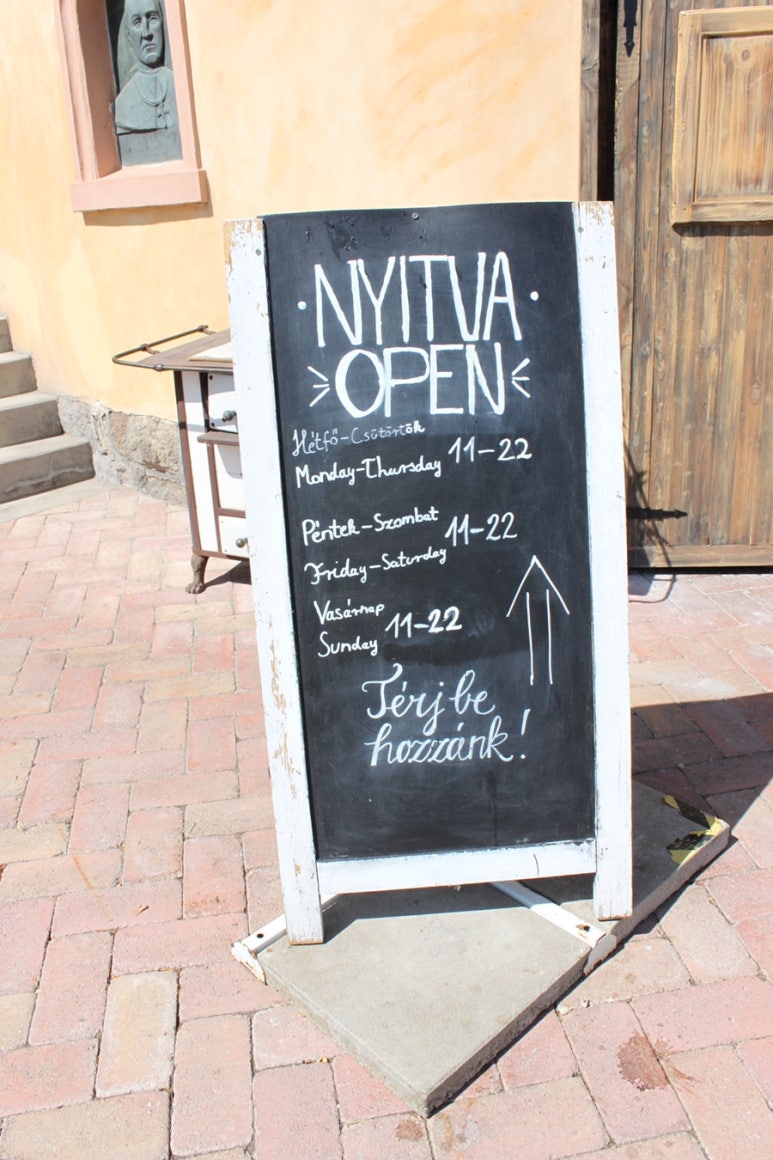 · NYITVA ·
OPEN
Hétfő-Csütörtök
Monday-Thursday 11-22
Péntek-Szombat
Friday-Saturday 11-22
Vasárnap
Sunday 11-22
Térj be
hozzánk!